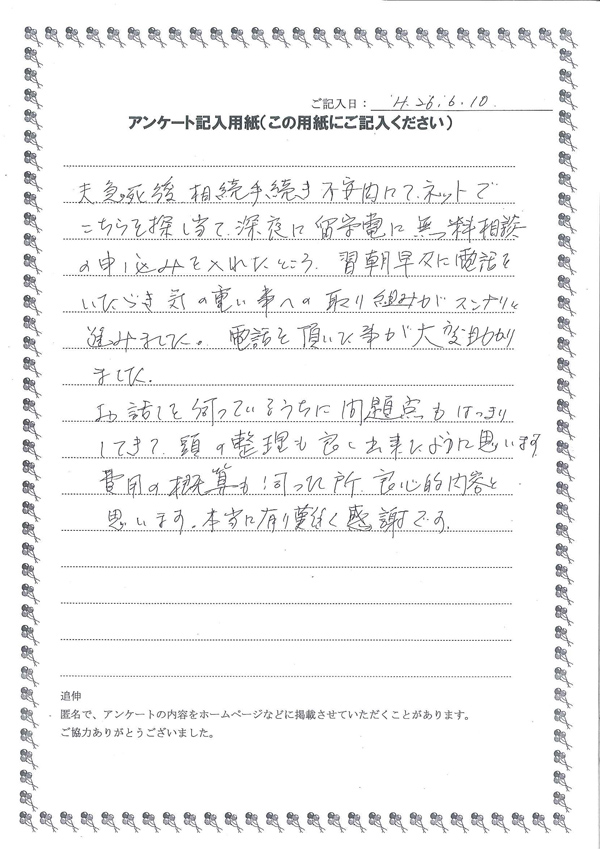 ご記入日: H.26.6.10.
アンケート記入用紙(この用紙にご記入ください)
夫急死後 相続手続き 不案内にて、ネットで
こちらを探し当て、深夜に留守電に無料相談
の申し込みを入れたところ、習朝早々に電話を
いただき気の重い事への取り組みがスンナリと
進みました。 電話を頂いた事が大変助かり
ました。
お話しを伺っているうちに問題点もはっきり
してきて、頭の整理も良く出来たように思います
費用の概算も伺った所、良心的内容と
思います。本当に有り難く感謝です。
追伸
匿名で、アンケートの内容をホームページなどに掲載させていただくことがあります。
ご協力ありがとうございました。